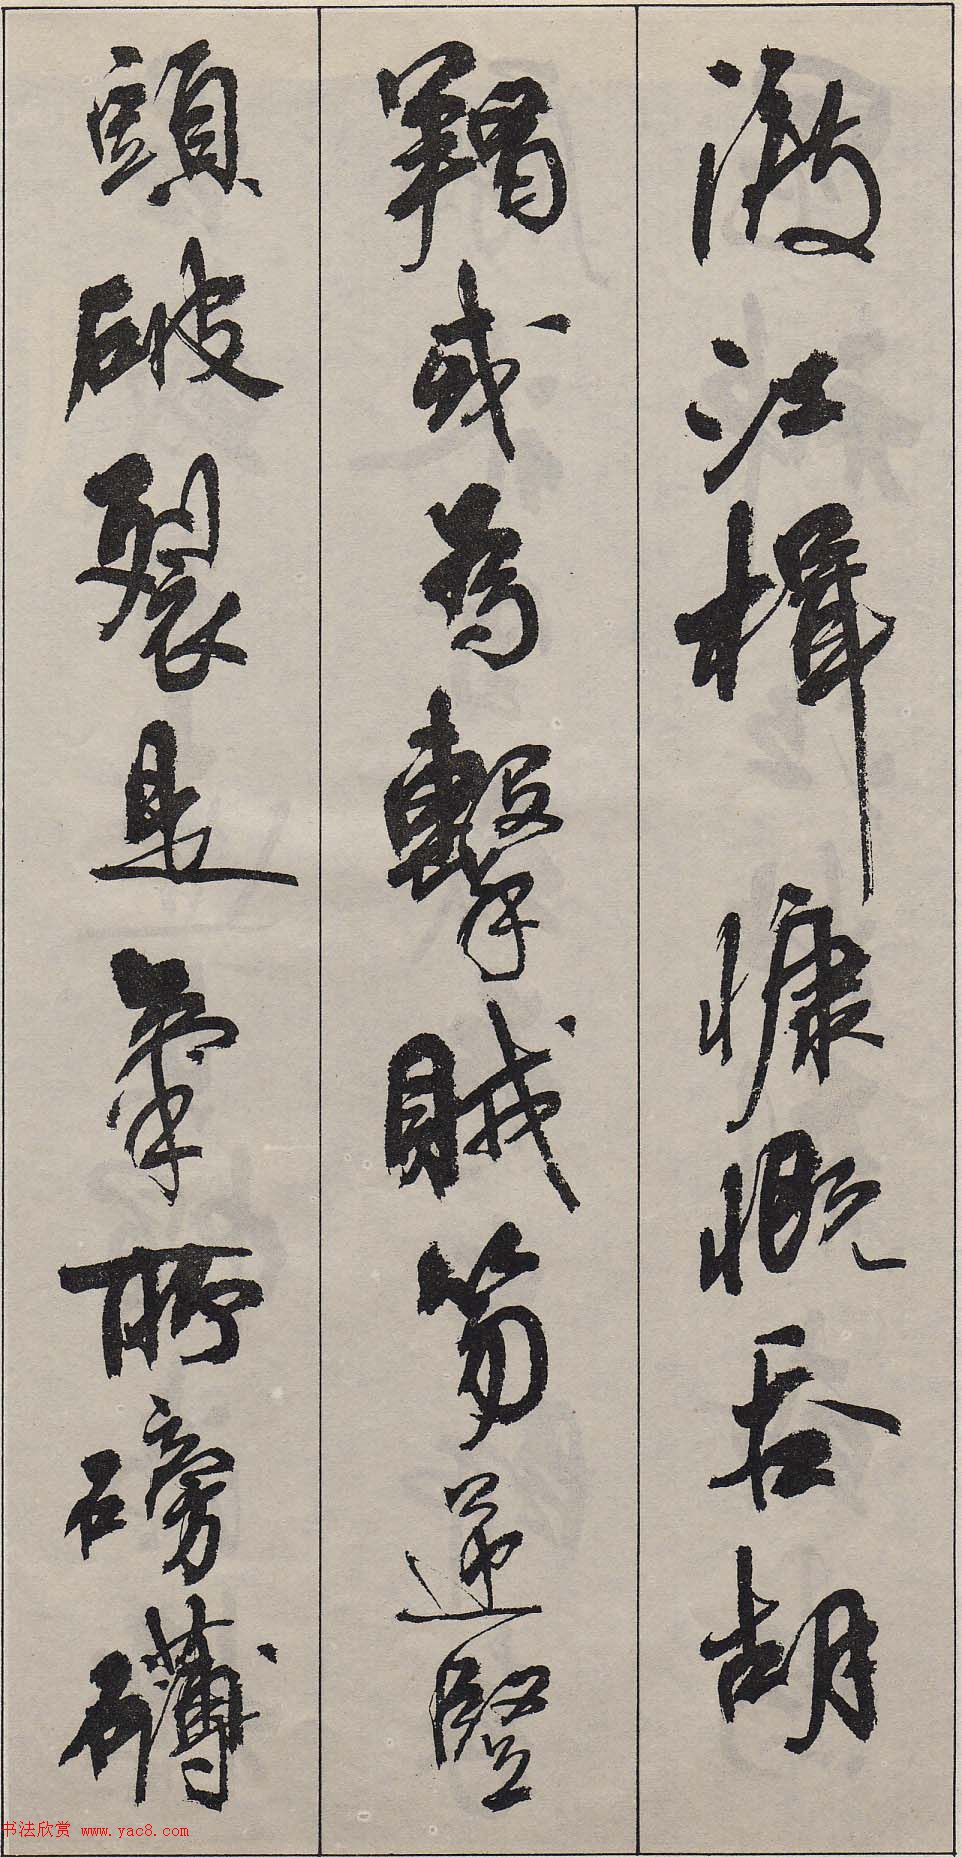 渡江楫慷慨吞胡
羯或為擊賊笏逆豎
頭破裂是氣所磅礴
书法欣赏 www.yac8.com